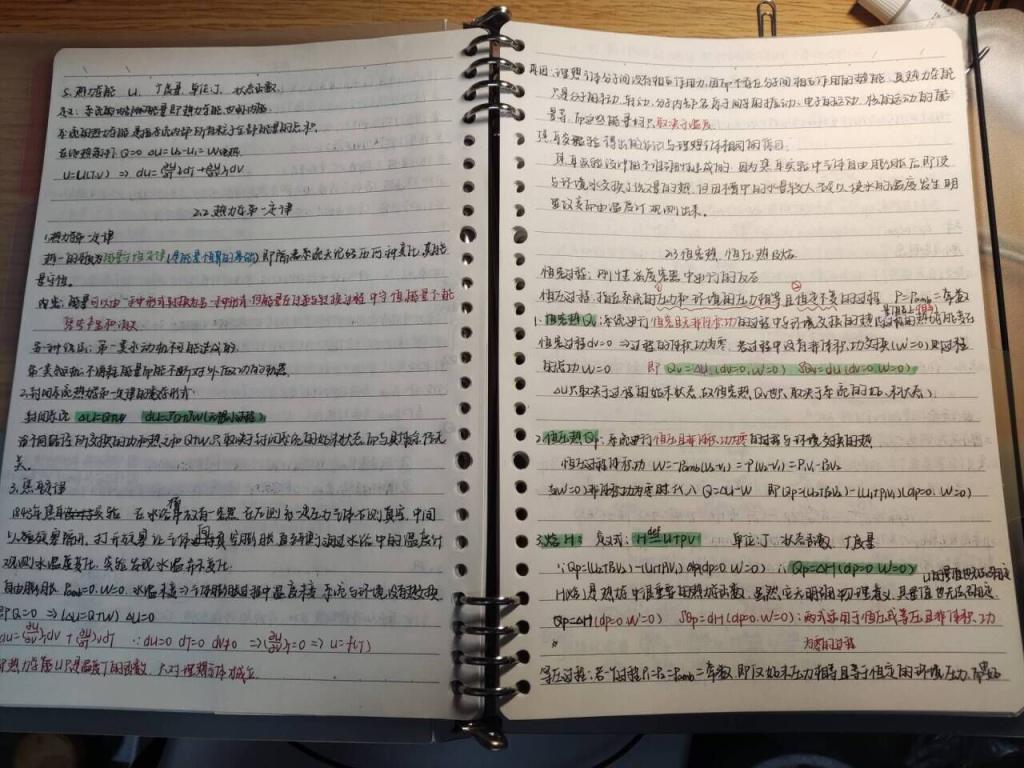 5.热力学能 U. 广度量.单位:J. 状态函数.
定义:系统内部的能量即热力学能
系统的热力学能是指系统内部所有粒子全部能量的总和.
在绝热条件 Q=0 ΔU=U₂-U₁=W绝热
U=U(T,V) ⇒ dU=(∂U/∂T)dT+(∂U/∂V)dV
2.2 热力学第一定律
1.热力学第一定律
热一的本质为能量守恒定律(是能量恒算的基础) 即隔离系统无论经历何种变化,其能
量守恒.
内容:能量可以由一种形式转换为另一种形式,但能量在过程与转换过程中守恒.能量不能
另一种说法:第一类永动机不可能造成的.
第一类永动机:不消耗能量却能不断对外做功的机器.
2.封闭系统热力学第一定律的表达形式:
封闭系统 ΔU=Q+W dU=δQ+δW(无限小过程)
沿不同路径所交换的功和热之和Q+W只取决于封闭系统的始末状态,而与具体途径无
关.
3.焦耳定律
1843年焦耳实验 在水浴中放有一容器 在左侧充一定压力气体 右侧真空,中间
以旋塞隔开,打开旋塞让气体向真空膨胀 直至平衡 通过水浴中的温度计
观测水温度变化,实验发现水温未变化.
自由膨胀 Pamb=0. W=0. 水温不变⇒气体膨胀过程中温度不变 系统与环境没有热交换
即Q=0 ⇒(ΔU=Q+W) ΔU=0
dU=(∂U/∂V)TdV+(∂U/∂T)VdT ∵dU=0 dT=0 dV≠0 ⇒(∂U/∂V)T=0 ⇒ U=f(T)
即热力学能U只是温度T的函数. 只对理想气体成立
原因:理想气体分子间没有相互作用力,因而不存在分子间相互作用的势能,其热力学能
只是分子的平动、转动、分子内部各原子间的振动、电子的运动、核的运动的能
量等,而这些能量均只取决于温度
焦耳实验得出的结论与理想气体相同的原因.
焦耳实验设计的不精确所造成的.因为焦耳实验中气体自由膨胀后即使
与环境水交换了微量的热,但因水槽中的水量较大不足以使水的温度发生明
显改变而由温度计观测出来.
2.3 恒容热、恒压热及焓
恒容过程:刚性密度容器中进行的反应
恒压过程:指在系统的压力和环境的压力相等且恒定不变的过程 P=Pamb=常数
1.恒容热Qv:系统进行恒容且无非体积功的过程中与环境交换的热
恒容过程dv=0 ⇒过程的体积功为零.若过程中没有非体积功交换(W'=0)则过程
的总功W=0 即 Qv=ΔU(dv=0,W'=0) δQv=dU(dv=0.W'=0)
ΔU只取决于过程的始末状态,故恒容热Qv也只取决于系统的始、末状态).
2.恒压热Qp:系统进行恒压且非体积功为零的过程与环境交换的热
恒压过程体积功 W=-Pamb(V₂-V₁)=-P(V₂-V₁)=P₁V₁-P₂V₂
在W'=0)非体积功为零时代入 Q=ΔU-W 即Qp=(U₂+P₂V₂)-(U₁+P₁V₁)(dp=0.W'=0)
3.焓H: 定义式:H def U+PV 单位:J. 状态函数. 广度量
∵Qp=(U₂+P₂V₂)-(U₁+P₁V₁)(dp=0.W'=0) ∴Qp=ΔH(dp=0.W'=0)
H(焓)是热力学中很重要的热力学函数.虽然它无明确物理意义,其量值也无法确定
Qp=ΔH(dp=0.W'=0) δQp=dH(dp=0.W'=0):两式适用于恒压或等压且非体积功
为零的过程
等压过程:若一个过程P₁=P₂=Pamb=常数,即仅始末压力相等且等于恒定的环境压力